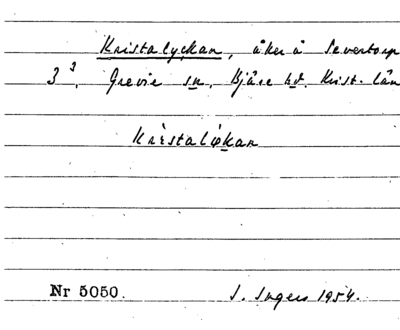 Kristalyckan, åker å Severtorp
3³. Grevie sn, Bjäre hd. Krist. län
Krìstaly̨kan
Nr 5050. S. Ingers 1954.